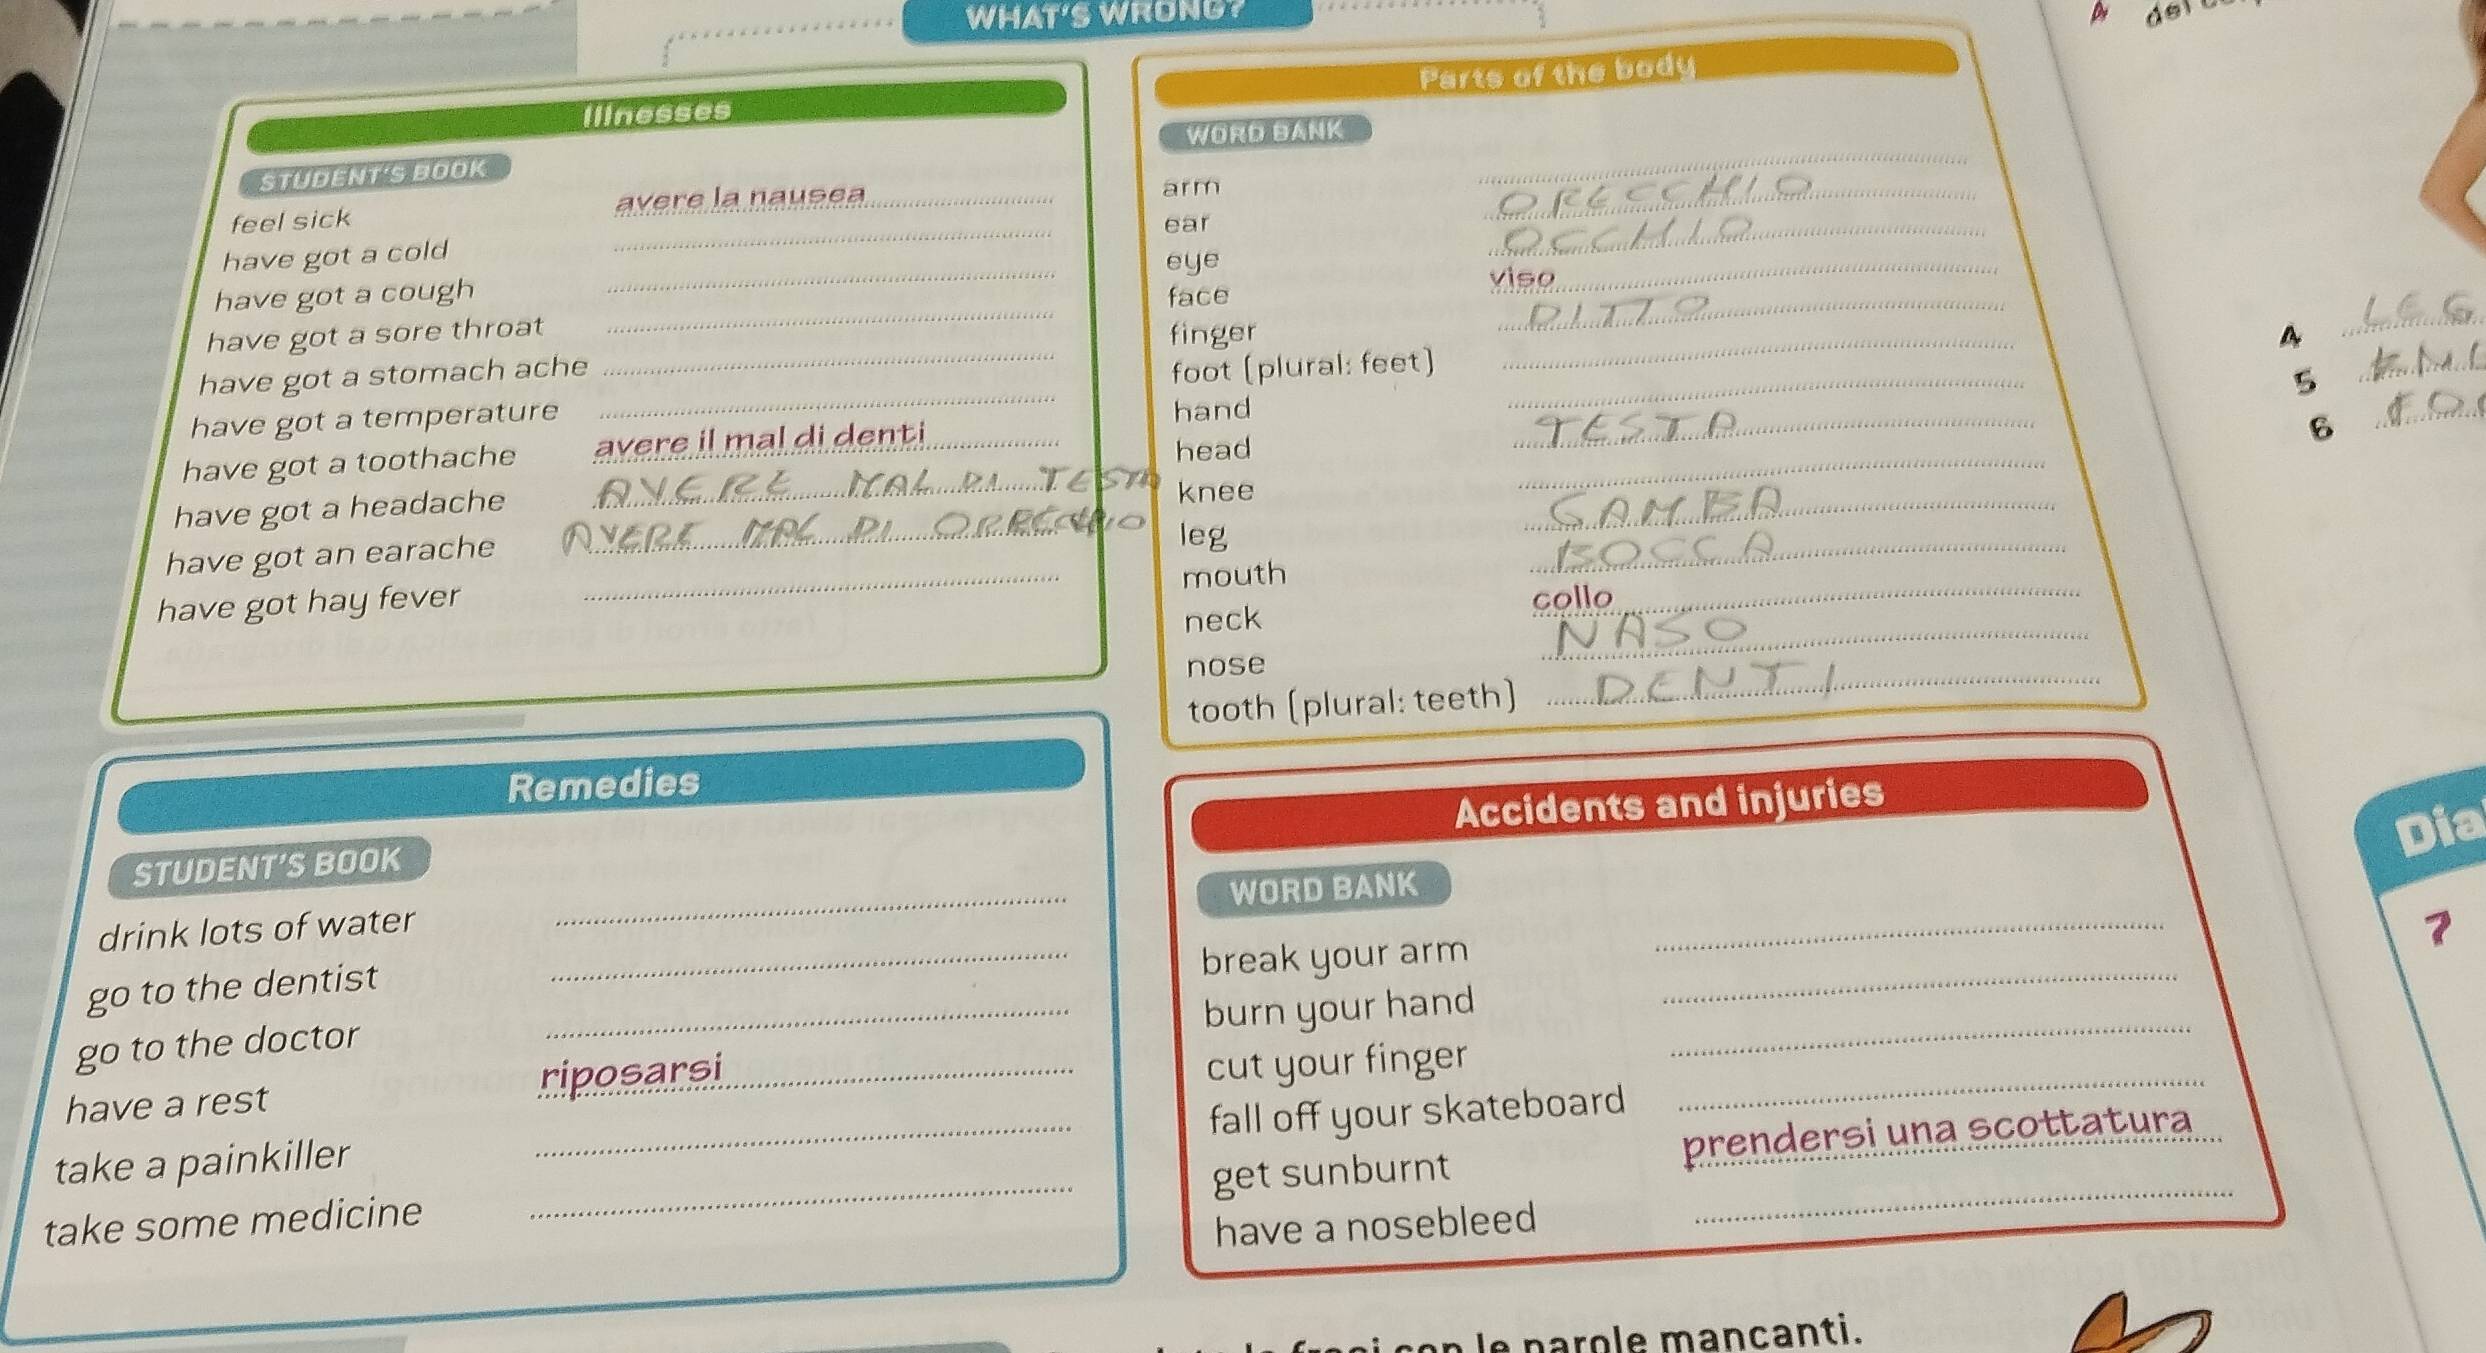 WHAT'S WRONG?
Illnesses
STUDENT'S BOOK
feel sick avere la nausea
have got a cold
have got a cough
have got a sore throat
have got a stomach ache
have got a temperature
have got a toothache avere il mal di denti
have got a headache AVERE MAL DI TESTA
have got an earache AVERE MAL DI ORRECCHIO
have got hay fever
Parts of the body
WORD BANK
arm
ear ORECCHIO
eye OCCHIO
face viso
finger DITTO
foot (plural: feet)
hand
head TESTA
knee
leg GAMBA
mouth BOCCA
neck collo
nose NASO
tooth (plural: teeth) DENTI
Remedies
STUDENT'S BOOK
drink lots of water
go to the dentist
go to the doctor
have a rest riposarsi
take a painkiller
take some medicine
Accidents and injuries
WORD BANK
break your arm
burn your hand
cut your finger
fall off your skateboard
get sunburnt prendersi una scottatura
have a nosebleed
con le parole mancanti.
A del
4 LEG
5
6
Dia
7